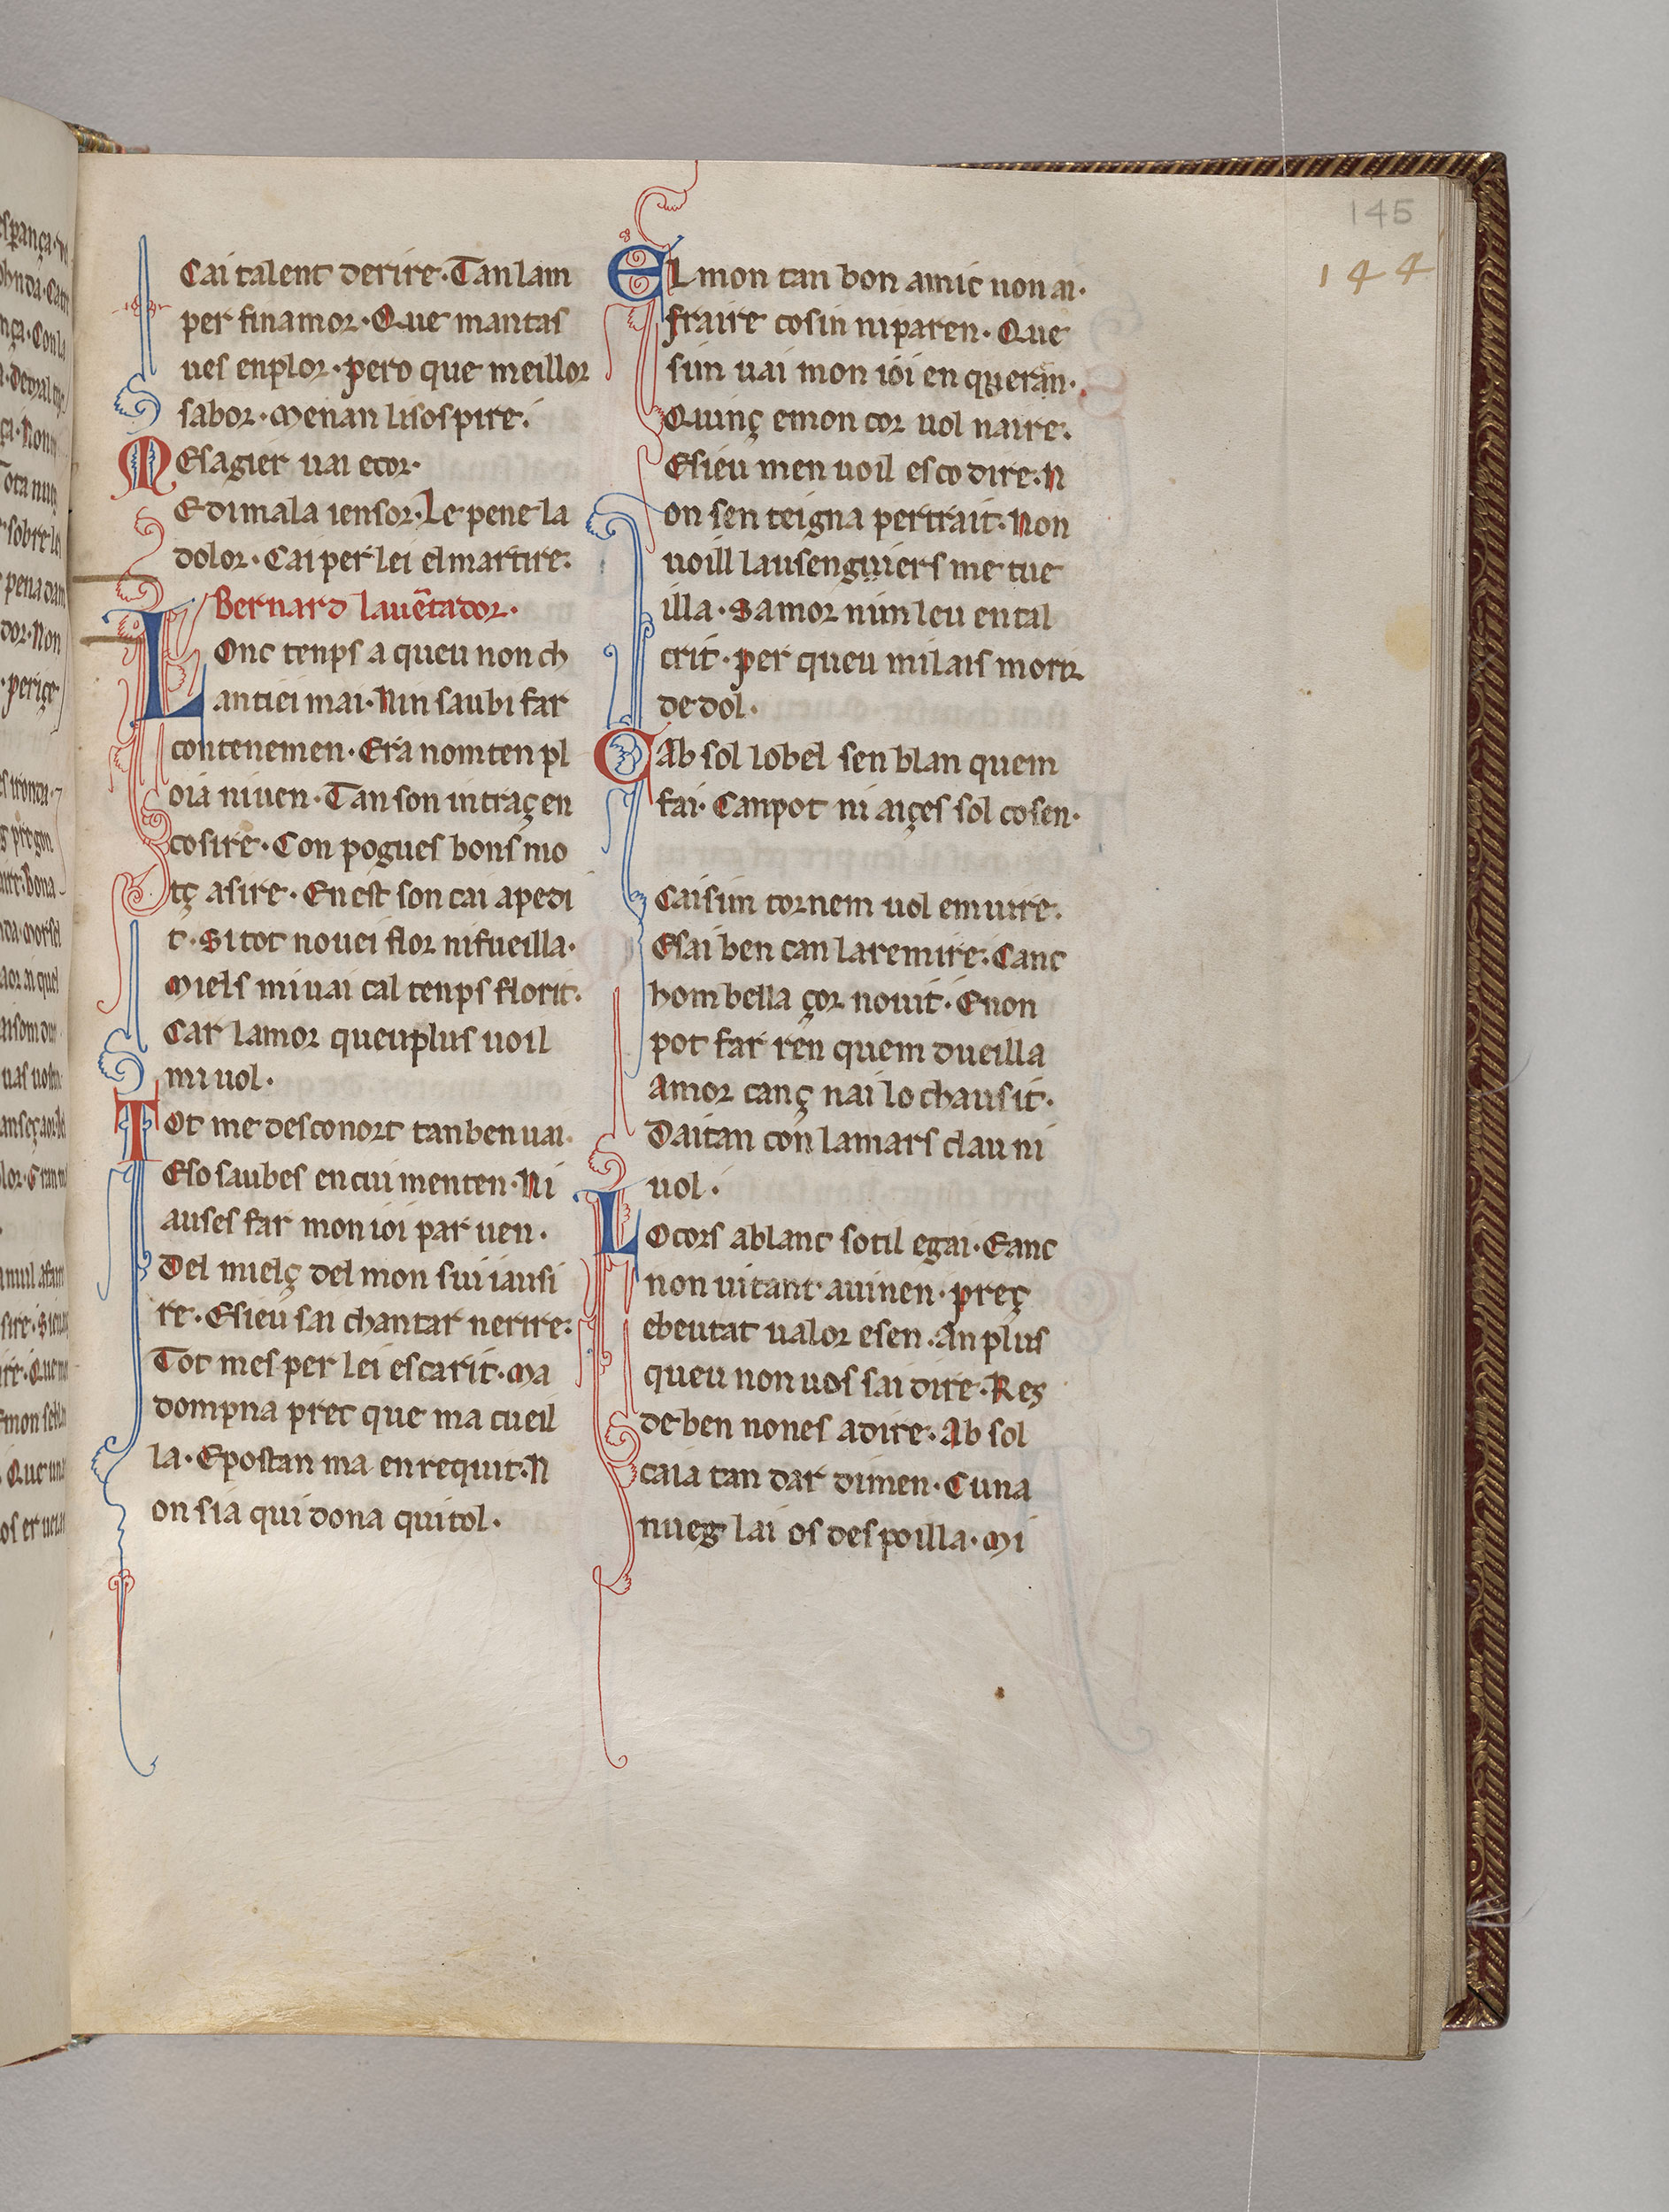 145
144
Cai talent derire· Tan lam
per finamor· Que mantas
ues enplor· pero que meillor
sabor· Menan lisospire·
Mesagier uai ecor·
Edimala iensor· Le pene la
dolor· Cai per lei el martire·
Bernard lauẽtador·
Lonc tenps a queu non ch
antiei mai· Nin saubi far
contenemen· Era nom ten pl
oia ni uen· Tan son intraç en
cosire· Con pogues bons mo
tç asire· En est son cai apedi
t· Si tot nouei flor ni fueilla·
Miels mi uai cal tenps florit·
Car lamor queu plus uoil
mi uol·
Tot me desconort tan ben uai·
Eso saubes en cui menten· Ni
auses far mon ioi par uen·
Del mielç del mon sui iausi
re· Esieu sai chantar nerire·
Tot mes per lei escarit· Ma
dompna prec que ma cueil
la· Epostan ma enrequit· N
on sia qui dona qui tol·
El mon tan bon amic non ai·
fraire cosin ni paren· Que
sim uai mon ioi en queran·
Quinç e mon cor uol naire·
Esieu men uoil esco dire· N
on sen teigna per trait· Non
uoill lausenguiers me tue
illa· Samor nim leu en tal
crit· per queu mi lais morir
de dol·
Cab sol lo bel senblan quem
fai· Can pot ni aiçes sol cosen·
Caisim tornem uol em uire·
Esai ben can la remire· Canc
hom bella çor nouit· Enon
pot far ren quem dueilla
Amor canç nai lo chausit·
Daitan con la mars clau ni
uol·
Lo cors a blanc sotil egai· Eanc
non ui tant auinen· preç
ebeutat ualor esen· An plus
queu non uos sai dire· Res
de ben non es adire· Ab sol
caia tan dar dimen· Cuna
nueg lai os despoilla· Mi